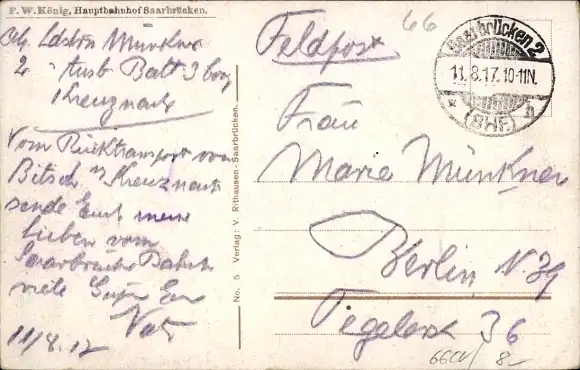 F. W. König, Hauptbahnhof Saarbrücken.
Münkner
2. Batl
Kreuznach
Vom Rücktransport von
Bitsch n. Kreuznach
sende Euch meine
Lieben vom
Saarbrücker Bahnh
viele Grüße Euer
Vater
11/8.17
No. 5 Verlag: V. Rithausen-Saarbrücken.
66
Feldpost
Saarbrücken 2
11.8.17.10-11N.
* (BHF) h
Frau
Marie Münkner
Berlin, N. 39
Tegeler 36
8-